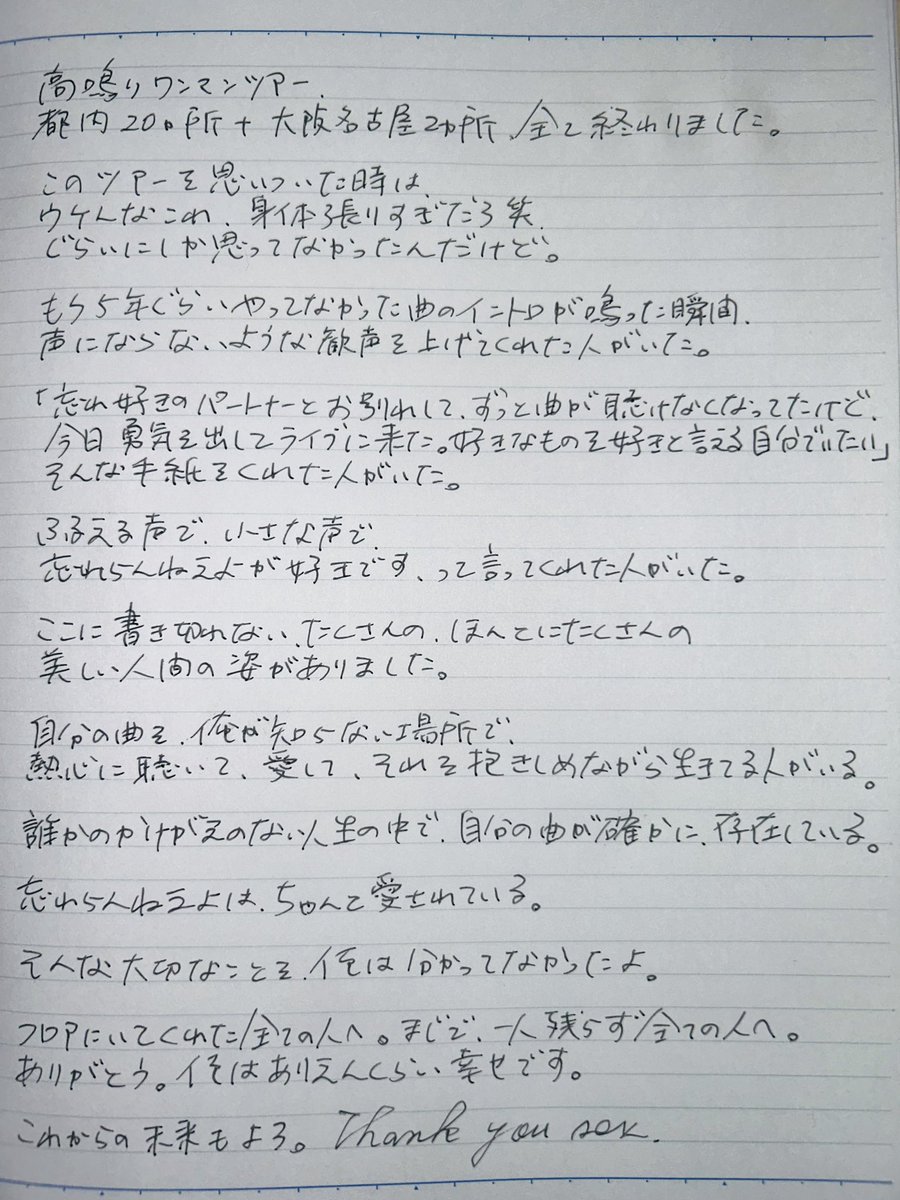 高鳴りワンマンツアー、
都内20ヵ所+大阪名古屋2ヵ所、全て終わりました。
このツアーを思いついた時は、
ウケんなこれ、身体張りすぎだろ笑
ぐらいにしか思ってなかったんだけど。
もう5年ぐらいやってなかった曲のイントロが鳴った瞬間、
声にならないような歓声を上げてくれた人がいた。
「忘れ好きのパートナーとお別れして、ずっと曲が聴けなくなってたけど、
今日勇気を出してライブに来た。好きなものを好きと言える自分でいたい」
そんな手紙をくれた人がいた。
ふるえる声で、小さな声で、
忘れらんねえよが好きです、って言ってくれた人がいた。
ここに書き切れない、たくさんの、ほんとにたくさんの
美しい人間の姿がありました。
自分の曲を、俺が知らない場所で、
熱心に聴いて、愛して、それを抱きしめながら生きてる人がいる。
誰かのかけがえのない人生の中で、自分の曲が確かに、存在している。
忘れらんねえよは、ちゃんと愛されている。
そんな大切なことを、俺は分かってなかったよ。
フロアにいてくれた全ての人へ。まじで、一人残らず全ての人へ。
ありがとう。俺はありえんくらい幸せです。
これからの未来もよろ。Thank you sex.